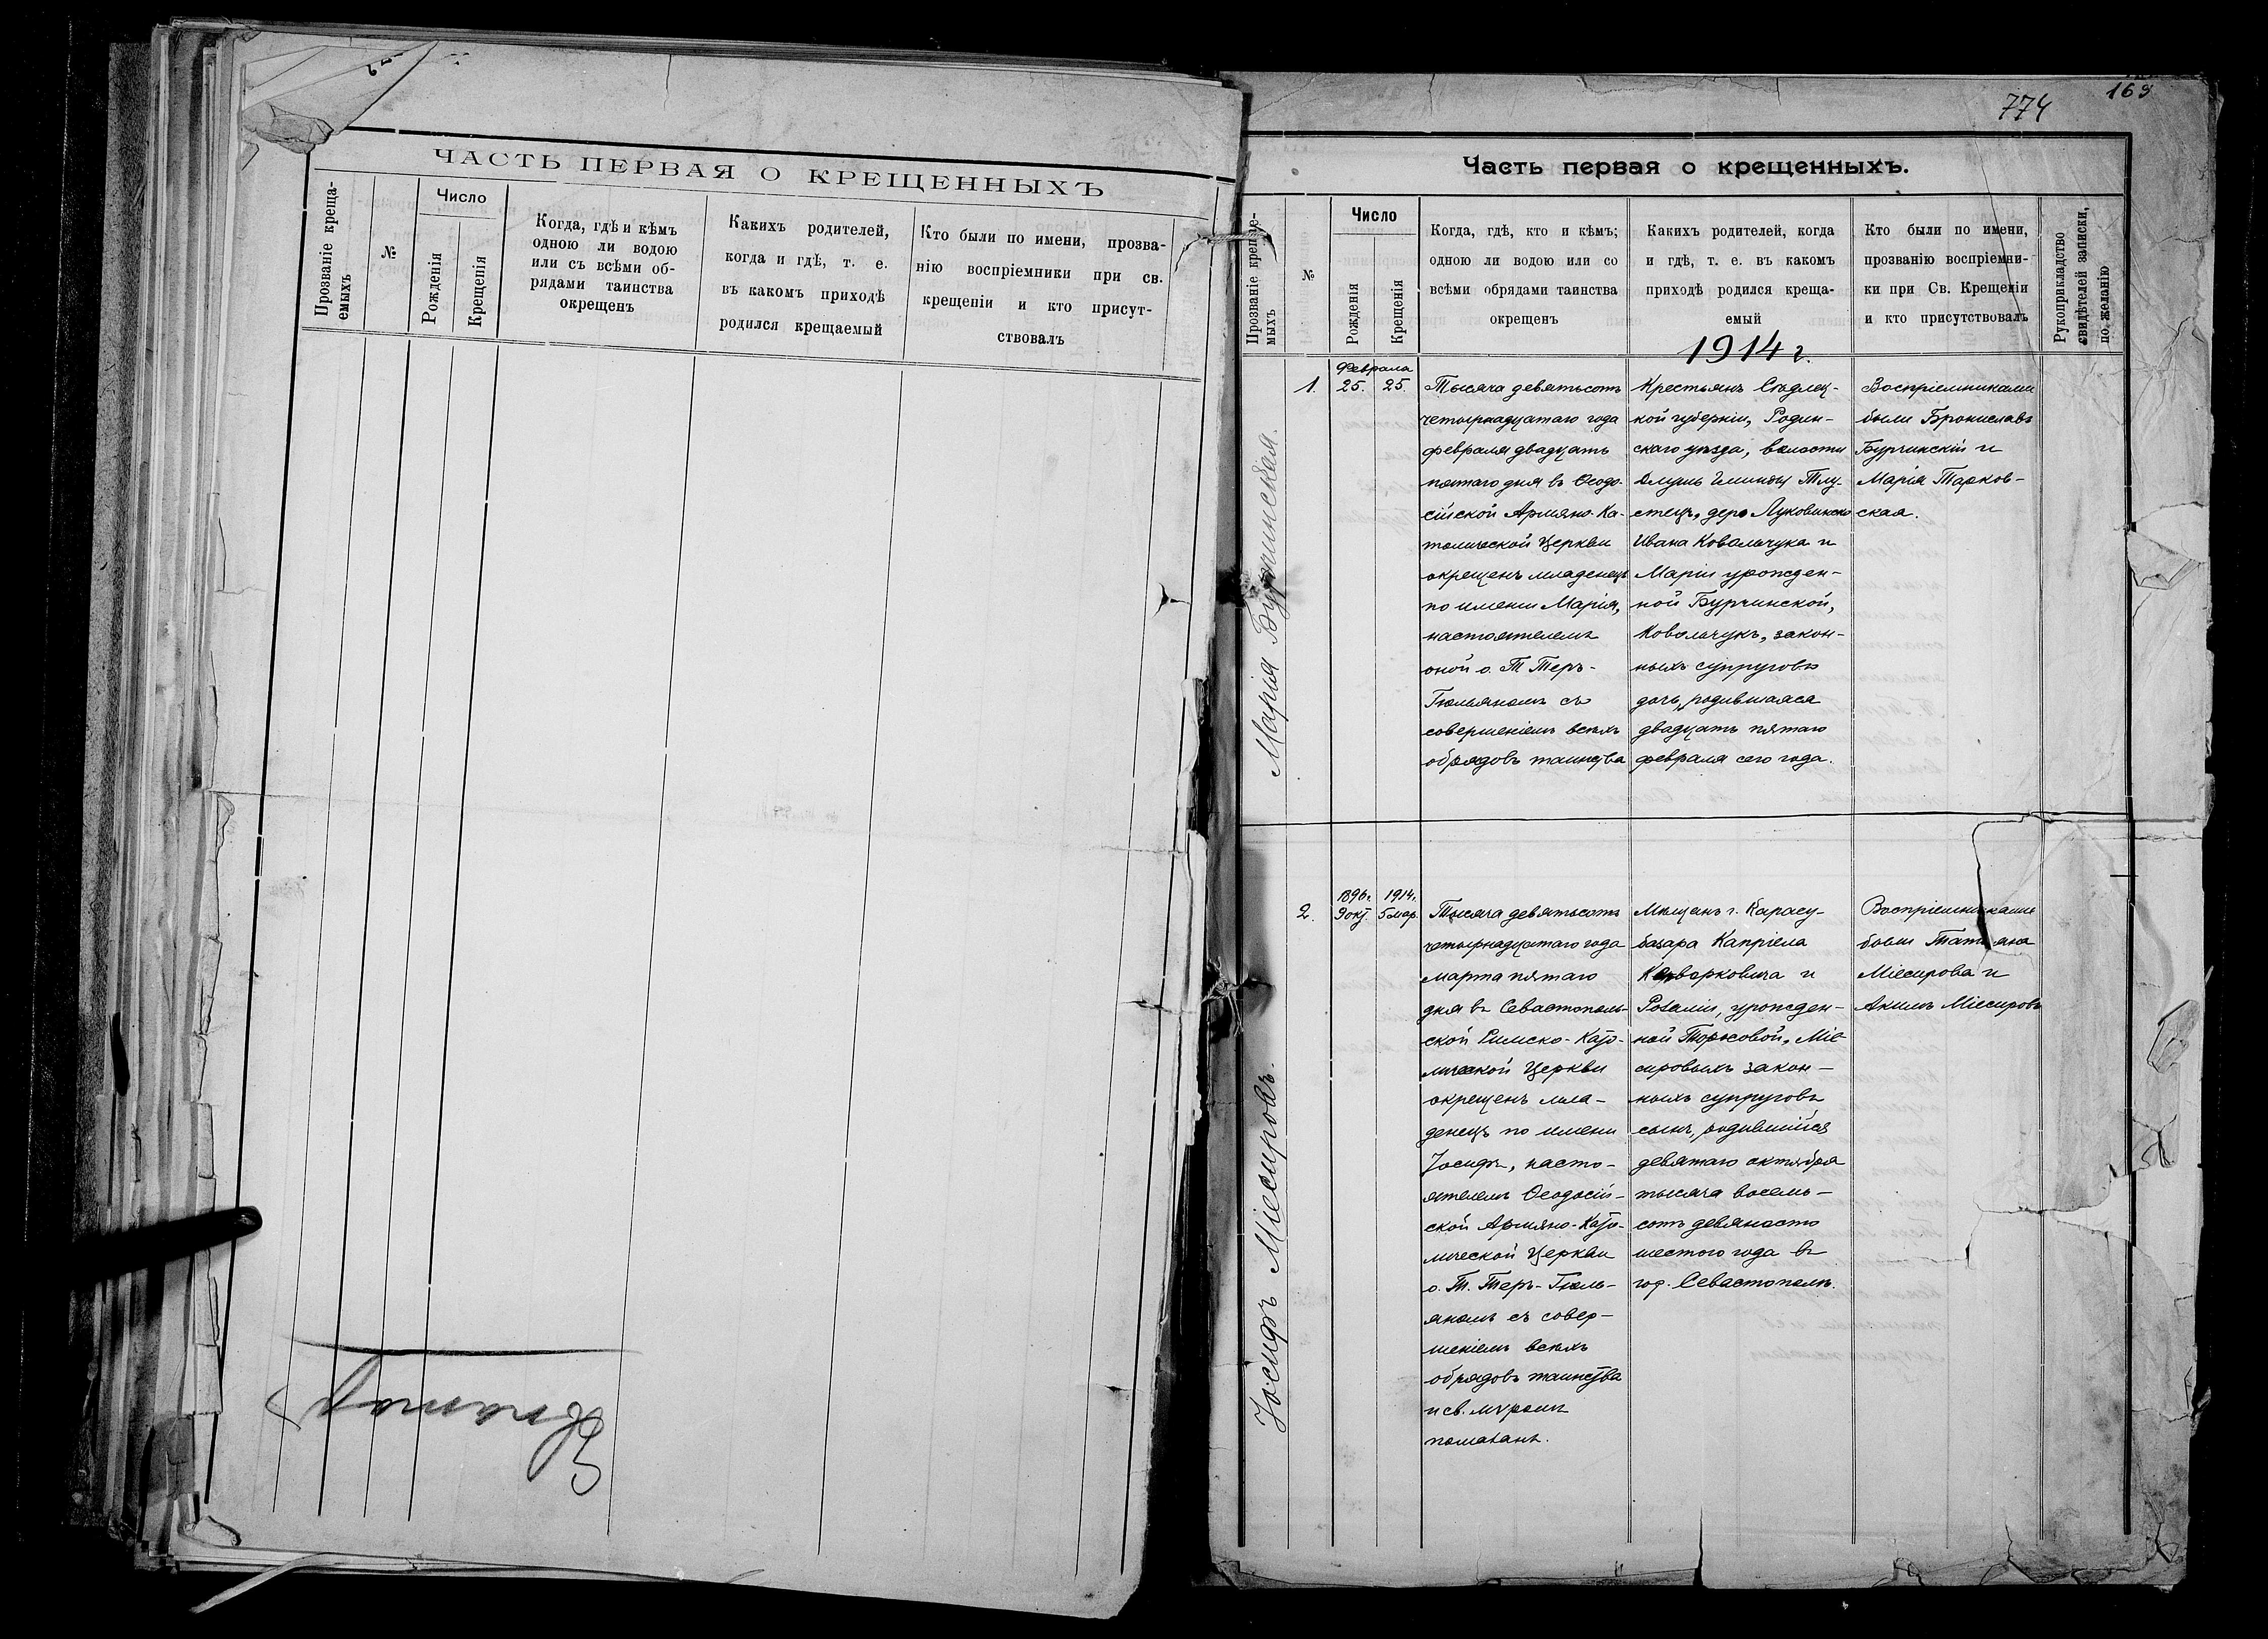 ЧАСТЬ ПЕРВАЯ О КРЕЩЕННЫХЪ
Прозваніе креща-
емыхъ
№
Число
Рожденія
Крещенія
Когда, гдѣ и кѣмъ
одною ли водою
или съ всѣми об-
рядами таинства
окрещенъ
Какихъ родителей,
когда и гдѣ, т. е.
въ какомъ приходѣ
родился крещаемый
Кто были по имени, прозва-
нію воспріемники при св.
крещеніи и кто присут-
ствовалъ
774
Часть первая о крещенныхъ.
Прозваніе крещае-
мыхъ
№
Число
Рожденія
Крещенія
Когда, гдѣ, кто и кѣмъ;
одною ли водою или со
всѣми обрядами таинства
окрещенъ
Какихъ родителей, когда
и гдѣ, т. е. въ какомъ
приходѣ родился креща-
емый
Кто были по имени,
прозванію воспріемни-
ки при Св. Крещеніи
и кто присутствовалъ
Рукоприкладство
свидѣтелей записки,
по желанію
1914 г.
Марія Бурчинская.
1.
Февраля
25. 25.
Тысяча девятьсотъ
четырнадцатаго года
февраля двадцать
пятаго дня въ Ѳеодо-
сійской Армяно-Ка-
толической Церкви
окрещенъ младенецъ
по имени Марія,
настоятелемъ
оной о. Т Теръ-
Гюльяномъ съ
совершеніемъ всѣхъ
обрядовъ таинства
Крестьянъ Сѣдлец-
кой губерніи, Радин-
скаго уѣзда, волости
гмины Тлу-
стецъ, дер.
Ивана Ковальчука и
Маріи урожден-
ной Бурчинской,
Ковальчукъ, закон-
ныхъ супруговъ
дочь, родившаяся
двадцать пятаго
февраля сего года.
Воспріемниками
были Брониславъ
Бурчинскій и
Марія Тарков-
ская.
Іосифъ Міесировъ.
2.
1896г. 1914г.
9 окт. 5 мар.
Тысяча девятьсотъ
четырнадцатаго года
марта пятаго
дня въ Севастополь-
ской Римско-Като-
лической Церкви
окрещенъ мла-
денецъ по имени
Іосифъ, насто-
ятелемъ Ѳеодосій-
ской Армяно-Като-
лической Церкви
о. Т. Теръ-Гюль-
яномъ съ совер-
шеніемъ всѣхъ
обрядовъ таинства
и св. мѵромъ
помазанъ.
Мѣщанъ г. Карасу-
базара Капріела
Кеворковича и
Розаліи, урожден-
ной Торосовой, Міе-
сировыхъ закон-
ныхъ супруговъ
сынъ, родившійся
девятаго октября
тысяча восемь-
сотъ девяносто
шестого года въ
гор. Севастополѣ.
Воспріемниками
были Татьяна
Міесирова и
Акимъ Міесировъ